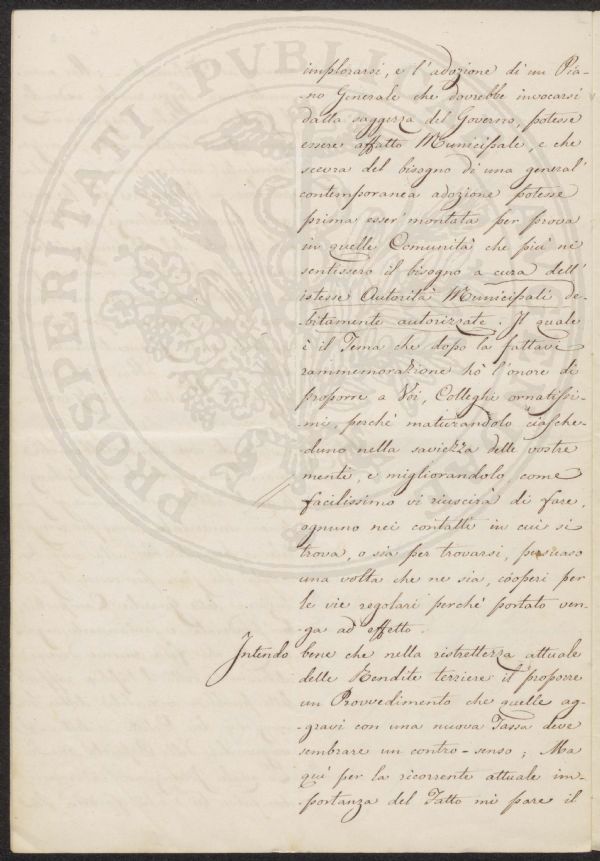 implorarsi, e l'adozione di un Pia-
-no Generale che dovrebbe invocarsi
dalla saggezza del Governo, potesse
essere affatto Municipale, e che
scevra del bisogno di una general'
contemporanea adozione potesse
prima esser' montata per prova
in quelle Comunità che più ne
sentissero il bisogno a cura dell'
istesse Autorità Municipali de-
-bitamente autorizzate. Il quale
è il Tema che dopo la fattavi
rammemorazione hò l'onore di
proporre a Voi, Colleghi ornatissi-
mi, perchè maturandolo ciasche-
duno nella saviezza delle vostre
mente, e migliorandolo, come
facilissimo vi riuscirà di fare,
ognuno nei contatti in cui si
trova, o sia per trovarsi, persuaso
una volta che ne sia, cooperi per
le vie regolari perchè portato ven-
-ga ad effetto.
Intendo bene che nella ristrettezza attuale
delle Rendite terriere il proporre
un Provvedimento che quelle ag-
-gravi con una nuova Tassa deve
sembrare un contro-senso; Ma
quì per la ricorrente attuale im-
-portanza del Fatto mi pare il
PROSPERITATI PVBLI